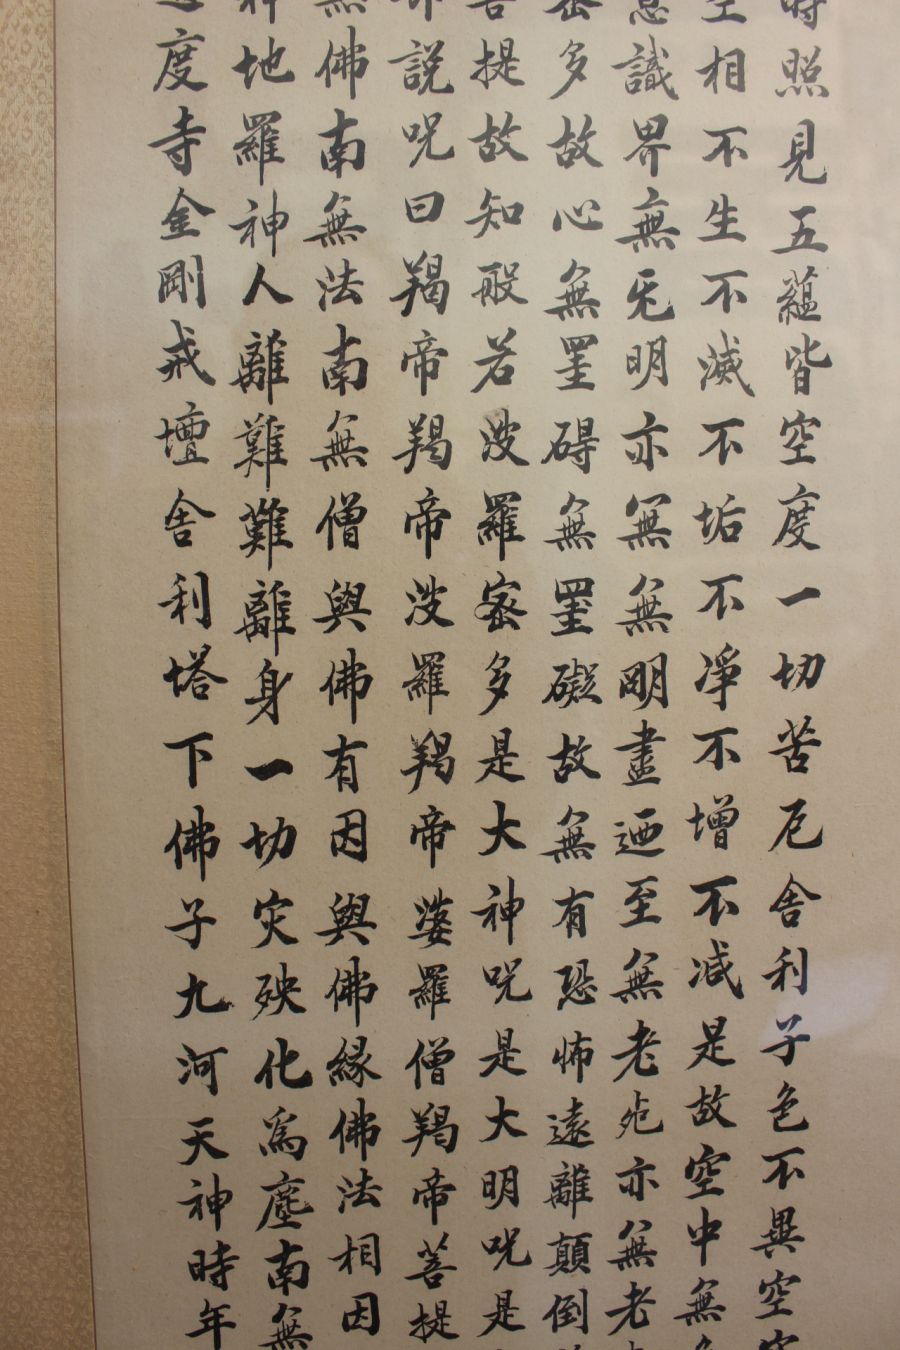 時照見五蘊皆空度一切苦厄舍利子色不異空
空相不生不滅不垢不淨不增不減是故空中無
識界無无明亦無無明盡迺至無老死亦無老
密多故心無罣碍無罣礙故無有恐怖遠離顛倒
菩提故知般若波羅密多是大神咒是大明咒是
說咒曰羯帝羯帝波羅羯帝婆羅僧羯帝菩提
無佛南無法南無僧與佛有因與佛緣佛法相因
神地羅神人離難難離身一切灾殃化為塵南無
度寺金剛戒壇舍利塔下佛子九河天神時年